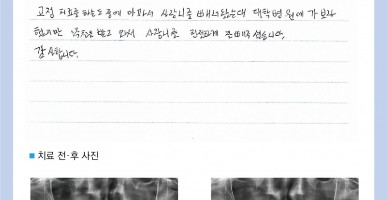 교정 치료를 하는 도중에 아파서 사랑니를 빼려 했는데 대학병원에 가보라
했지만 걱정을 했고 와서 사랑니를 친절하게 잘 빼주셨습니다.
감사합니다.
■ 치료 전·후 사진